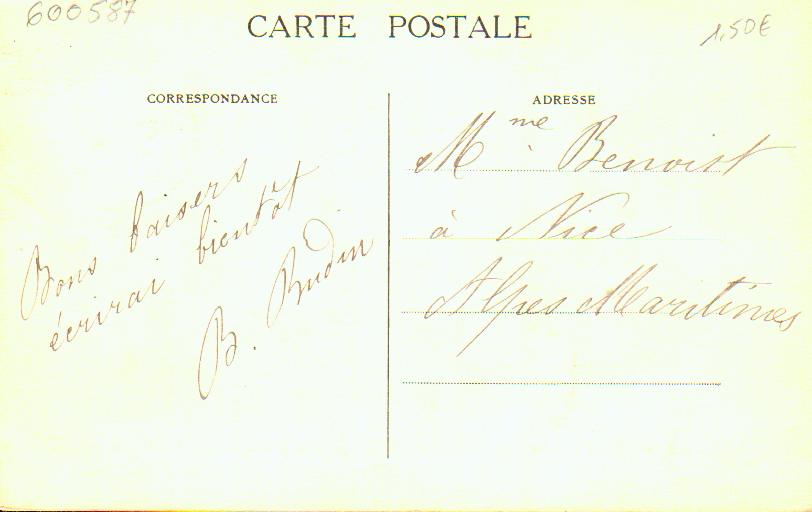 600587
1,50€
CARTE POSTALE
CORRESPONDANCE
Bons baisers
écrirai bientôt
B. Budin
ADRESSE
Mme Benoist
à Nice
Alpes Maritimes